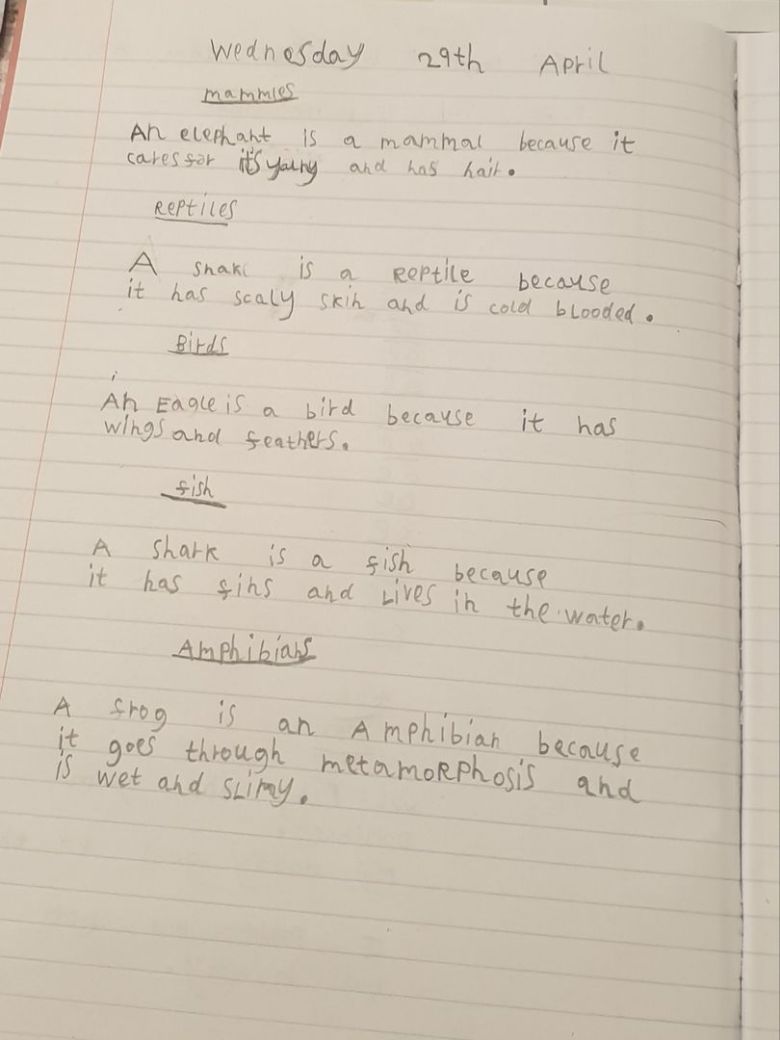 Wednesday 29th April
mammles
An elephant is a mammal because it
cares for it's young and has hair.
Reptiles
A snake is a Reptile because
it has scaly skin and is cold blooded.
Birds
An Eagle is a bird because it has
wings and feathers.
fish
A shark is a fish because
it has fins and Lives in the water.
Amphibians
A frog is an Amphibian because
it goes through metamorphosis and
is wet and slimy.